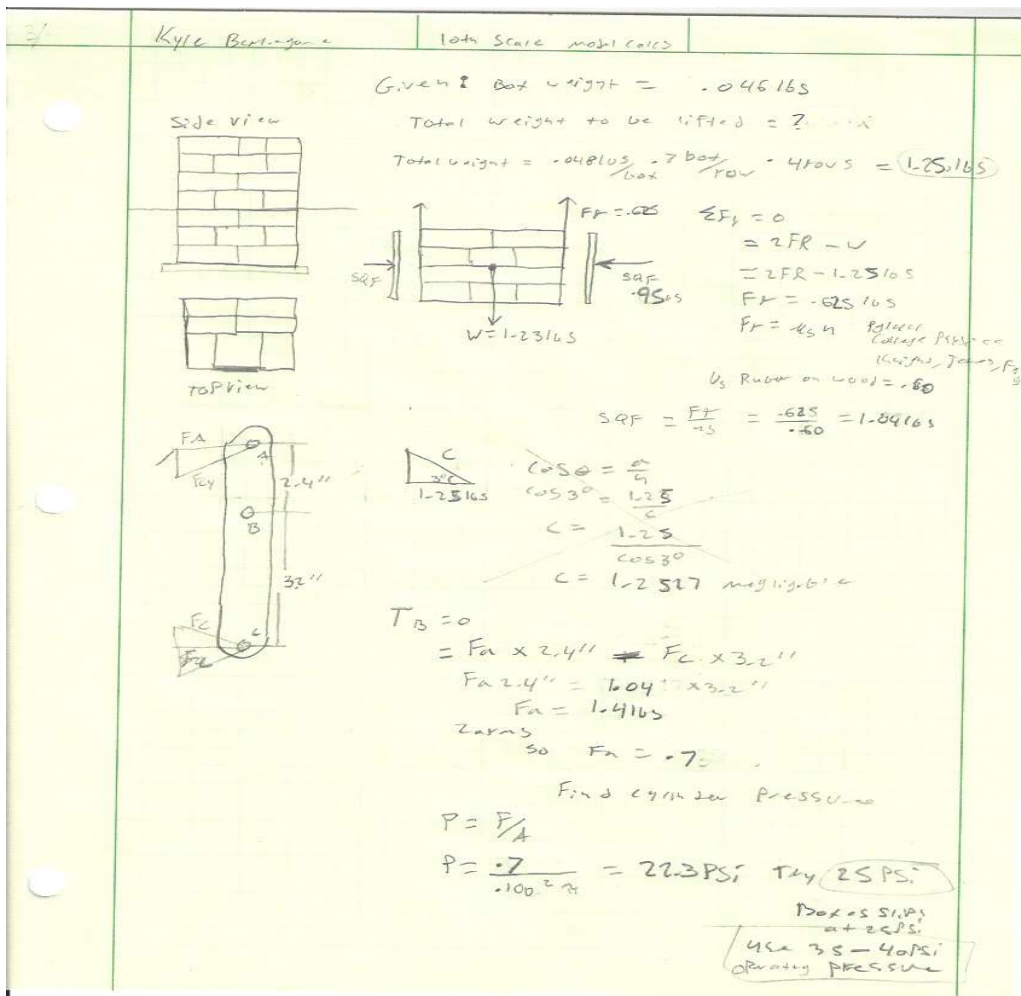 3/
Kyle
10th Scale model calcs
Given: Box weight = .046 lbs
Side view
Total weight to be lifted = ?
Total weight = .048 lbs/box · 7 box/row · 4 rows = 1.25 lbs
Fr = .625
ΣFy = 0
= 2FR - W
SQF
SQF
.95 lbs
= 2FR - 1.25 lbs
Fr = .625 lbs
W = 1.23 lbs
Fr = us n
College Physics
TOP View
Us Rubber on wood = .60
SQF = Fr/us = .625/.60 = 1.04 lbs
FA
A
2.4"
B
32"
Fc
C
C
3°
1.25 lbs
cos θ = a/h
cos 3° = 1.25/c
c = 1.25/cos 3°
c = 1.2517 negligible
TB = 0
= Fa x 2.4" = Fc x 3.2"
Fa 2.4" = 1.04 x 3.2"
Fa = 1.4 lbs
2 arms
so Fa = .7
Find cylinder Pressure
P = F/A
P = .7/.100² π = 22.3 PSi Try 25 PSi
Boxes slips
at 25 PSi
use 35-40 PSi
operating pressure